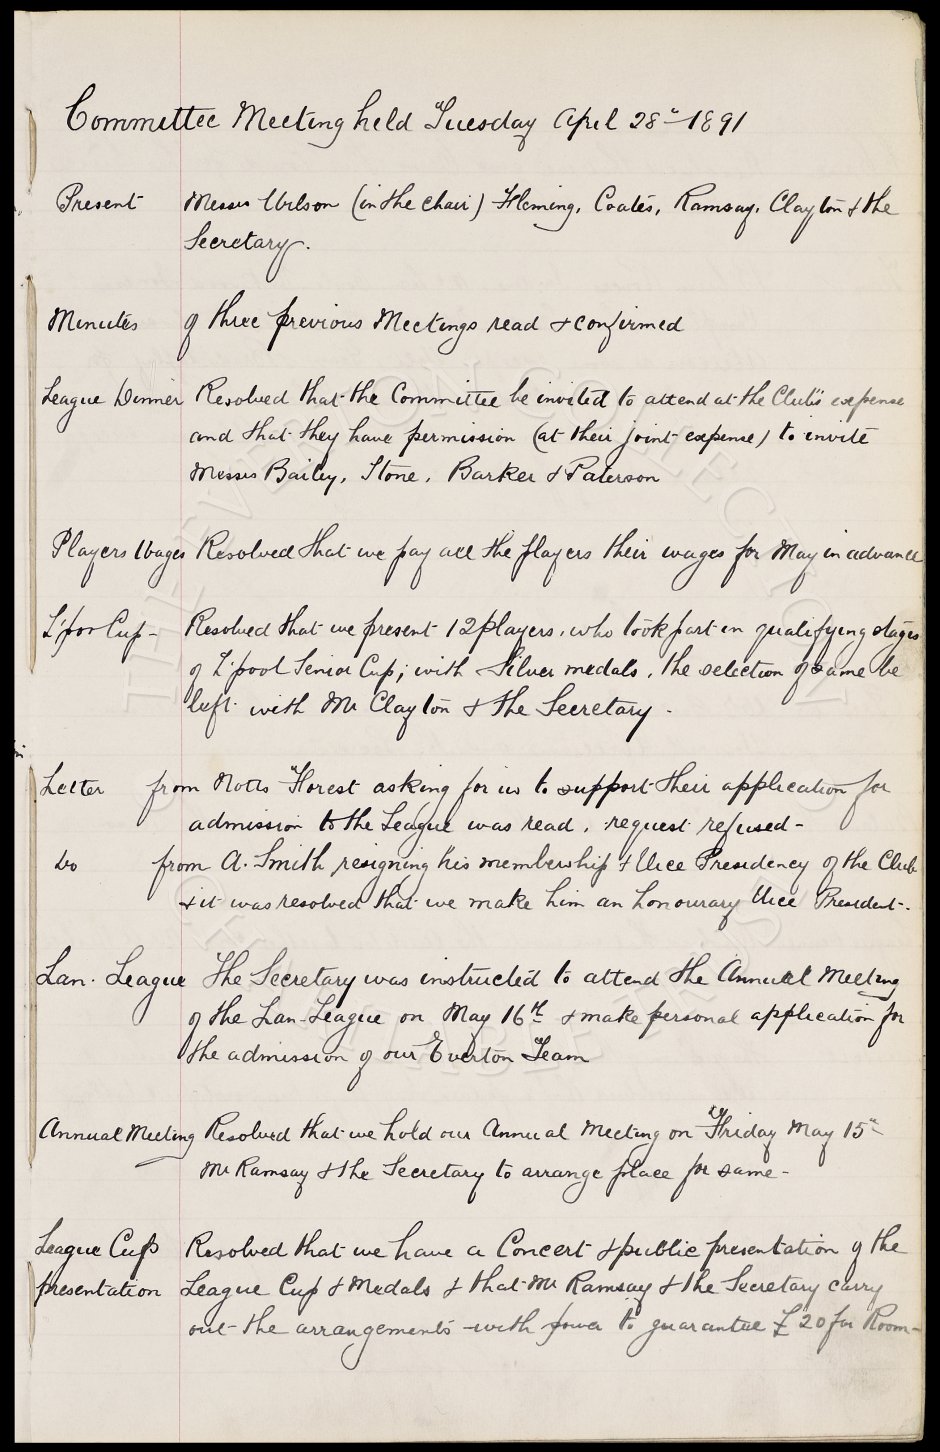 Committee Meeting held Tuesday April 28th 1891
Present Messrs Wilson (in the chair) Fleming, Coates, Ramsay, Clayton & the
Secretary.
Minutes of three previous Meetings read & confirmed
League Dinner Resolved that the Committee be invited to attend at the Club's expense
and that they have permission (at their joint expense) to invite
Messrs Bailey, Stone, Barker & Paterson
Players Wages Resolved that we pay all the players their wages for May in advance
L'pool Cup - Resolved that we present 12 players, who took part in qualifying stages
of L'pool Senior Cup, with Silver medals, the selection of same be
left with Mr Clayton & the Secretary.
Letter from Notts Forest asking for us to support their application for
admission to the League was read, request refused -
Do from A. Smith resigning his membership & Vice Presidency of the Club
& it was resolved that we make him an honourary Vice President -
Lan. League The Secretary was instructed to attend the Annual Meeting
of the Lan. League on May 16th & make personal application for
the admission of our Everton Team
Annual Meeting Resolved that we hold our Annual Meeting on Friday May 15th
Mr Ramsay & the Secretary to arrange place for same -
League Cup Resolved that we have a Concert & public presentation of the
presentation League Cup & Medals & that Mr Ramsay & the Secretary carry
out the arrangements with power to guarantee £20 for Room -